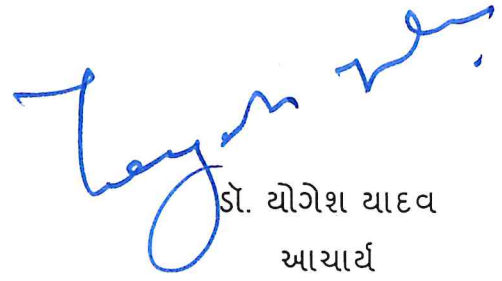 ડૉ. યોગેશ યાદવ
આચાર્ય